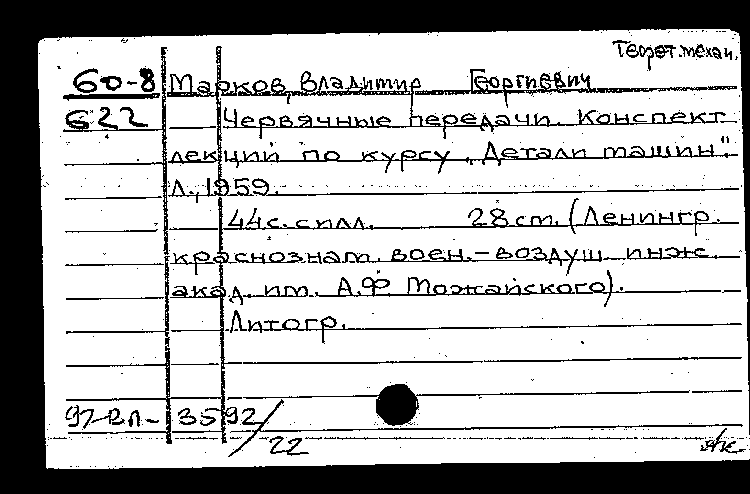 Теорет. механ.
60-8 Марков, Владимир Георгиевич
622 Червячные передачи. Конспект
лекций по курсу „Детали машин".
Л., 1959.
44 с. с илл. 28 cm. (Ленингр.
краснознам. воен.-воздуш. инж.
акад. им. А.Ф. Можайского).
Литогр.
97-Вл- 3592/22